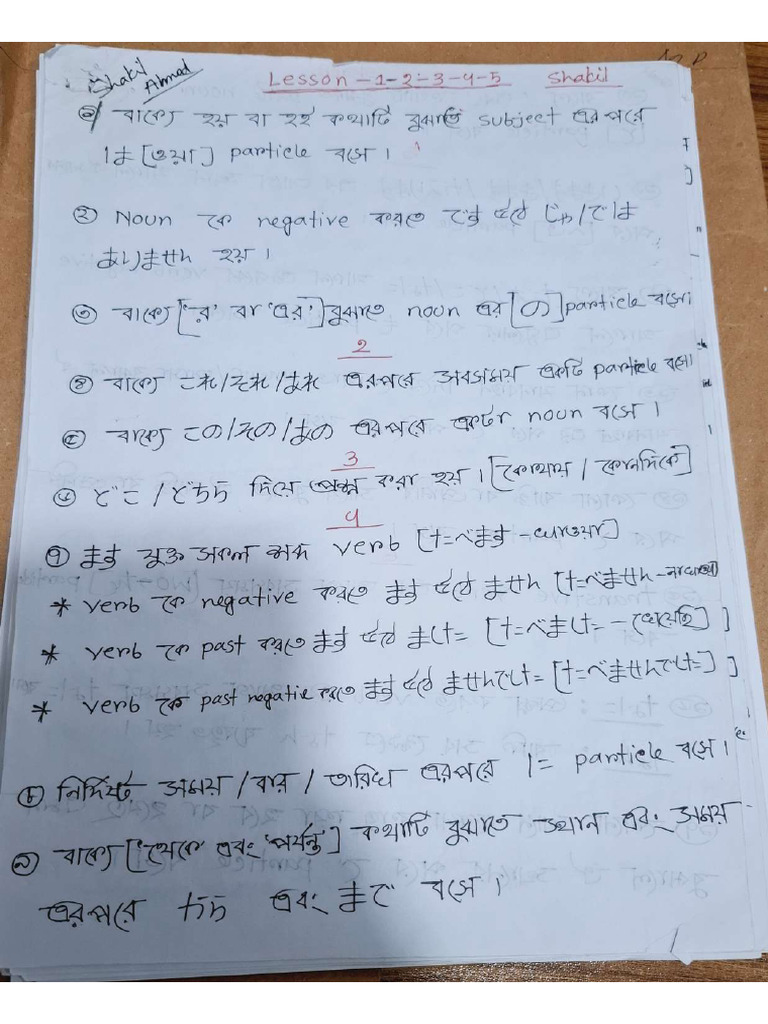 Shakil
Ahmed
Lesson-1-2-3-4-5 Shakil
১) বাক্যে হয় বা হই কথাটি বুঝাতে subject এরপরে
は [ওয়া] particle বসে।
1
২) Noun কে negative করতে です উঠে じゃ/では
ありません হয়।
৩) বাক্যে ['র' বা 'এর'] বুঝাতে noun এর [の] particle বসে।
2
৪) বাক্যে これ/それ/あれ এরপরে সবসময় একটি particle বসে।
৫) বাক্যে この/その/あの এরপরে একটা noun বসে।
3
৬) どこ/どちら দিয়ে প্রশ্ন করা হয়। [কোথায় / কোনদিকে]
4
৭) ます যুক্ত সকল শব্দ verb [たべます - খাওয়া]
* verb কে negative করতে ます উঠে ません [たべません-না খাওয়া]
* verb কে past করতে ます উঠে ました [たべました - খেয়েছি]
* verb কে past negatie করতে ます উঠে ませんでした [たべませんでした]
৮) নির্দিষ্ট সময় / বার / তারিখ এরপরে に particle বসে।
৯) বাক্যে ['থেকে' এবং 'পর্যন্ত'] কথাটি বুঝাতে স্থান এবং সময়
এরপরে から এবং まで বসে।
1